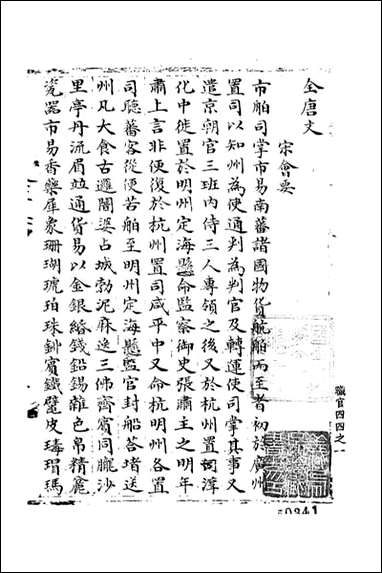 全唐文
宋會要
市舶司掌市易南蕃諸國物貨航舶而至者初於廣州
置司以知州為使通判為判官及轉運使司掌其事又
遣京朝官三班內侍三人專領之後又於杭州置司淳
化中徙置於明州定海縣命監察御史張肅主之明年
肅上言非便復於杭州置司咸平中又命杭明州各置
司聽蕃客從便若舶至明州定海縣監官封船莟堵送
州凡大食古邏闍婆占城勃泥麻逸三佛齊賓同朧沙
里亭丹流眉並通貨易以金銀緡錢鉛錫雜色帛精麤
瓷器市易香藥犀象珊瑚琥珀珠釧賓鐵鼊皮瑇瑁瑪
職官四四之一
50341